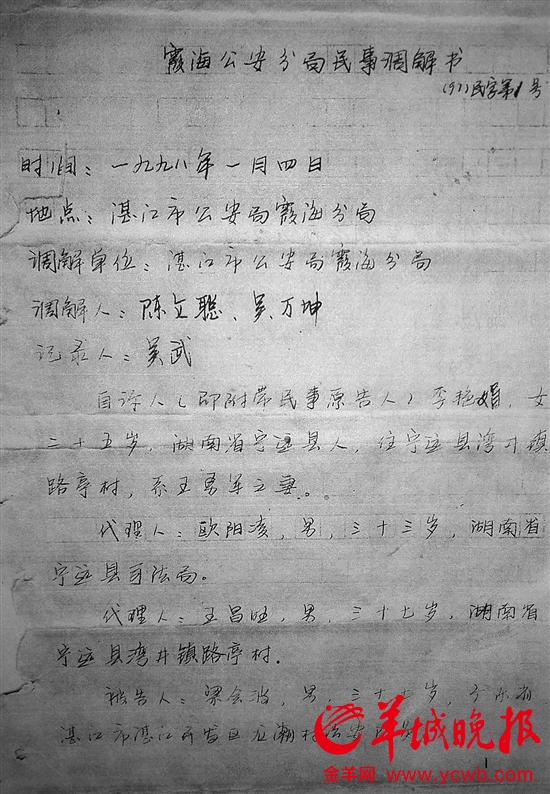 霞海公安分局民事调解书
(97)民字第1号
时间：一九九八年一月四日
地点：湛江市公安局霞海分局
调解单位：湛江市公安局霞海分局
调解人：陈立聪、吴万坤
记录人：吴武
自诉人（即附带民事原告人）李艳娟，女
三十五岁，湖南省宁远县人，住宁远县湾井镇
路亭村，系王勇军之妻。
代理人：欧阳凌，男，三十三岁，湖南省
宁远县司法局。
代理人：王昌旺，男，三十七岁，湖南省
宁远县湾井镇路亭村.
被告人：梁会治，男，三十七岁，广东省
湛江市湛江开发区龙潮村
羊城晚报
金羊网 www.ycwb.com
1